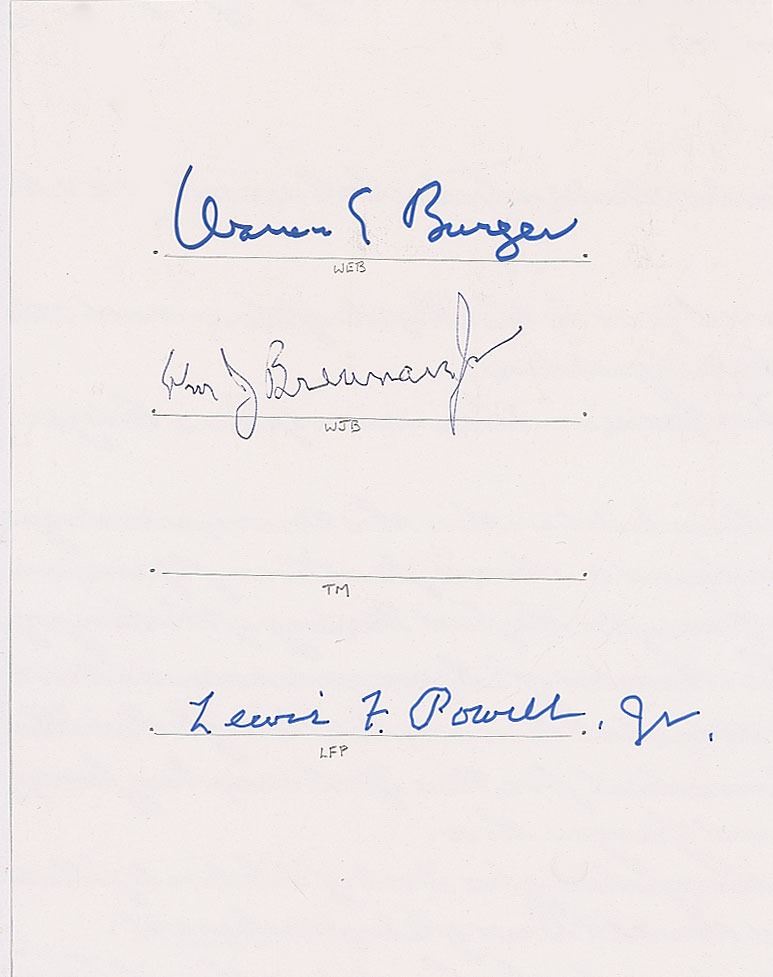 Warren E Burger
WEB
Wm J Brennan Jr
WJB
TM
Lewis F. Powell, Jr.
LFP